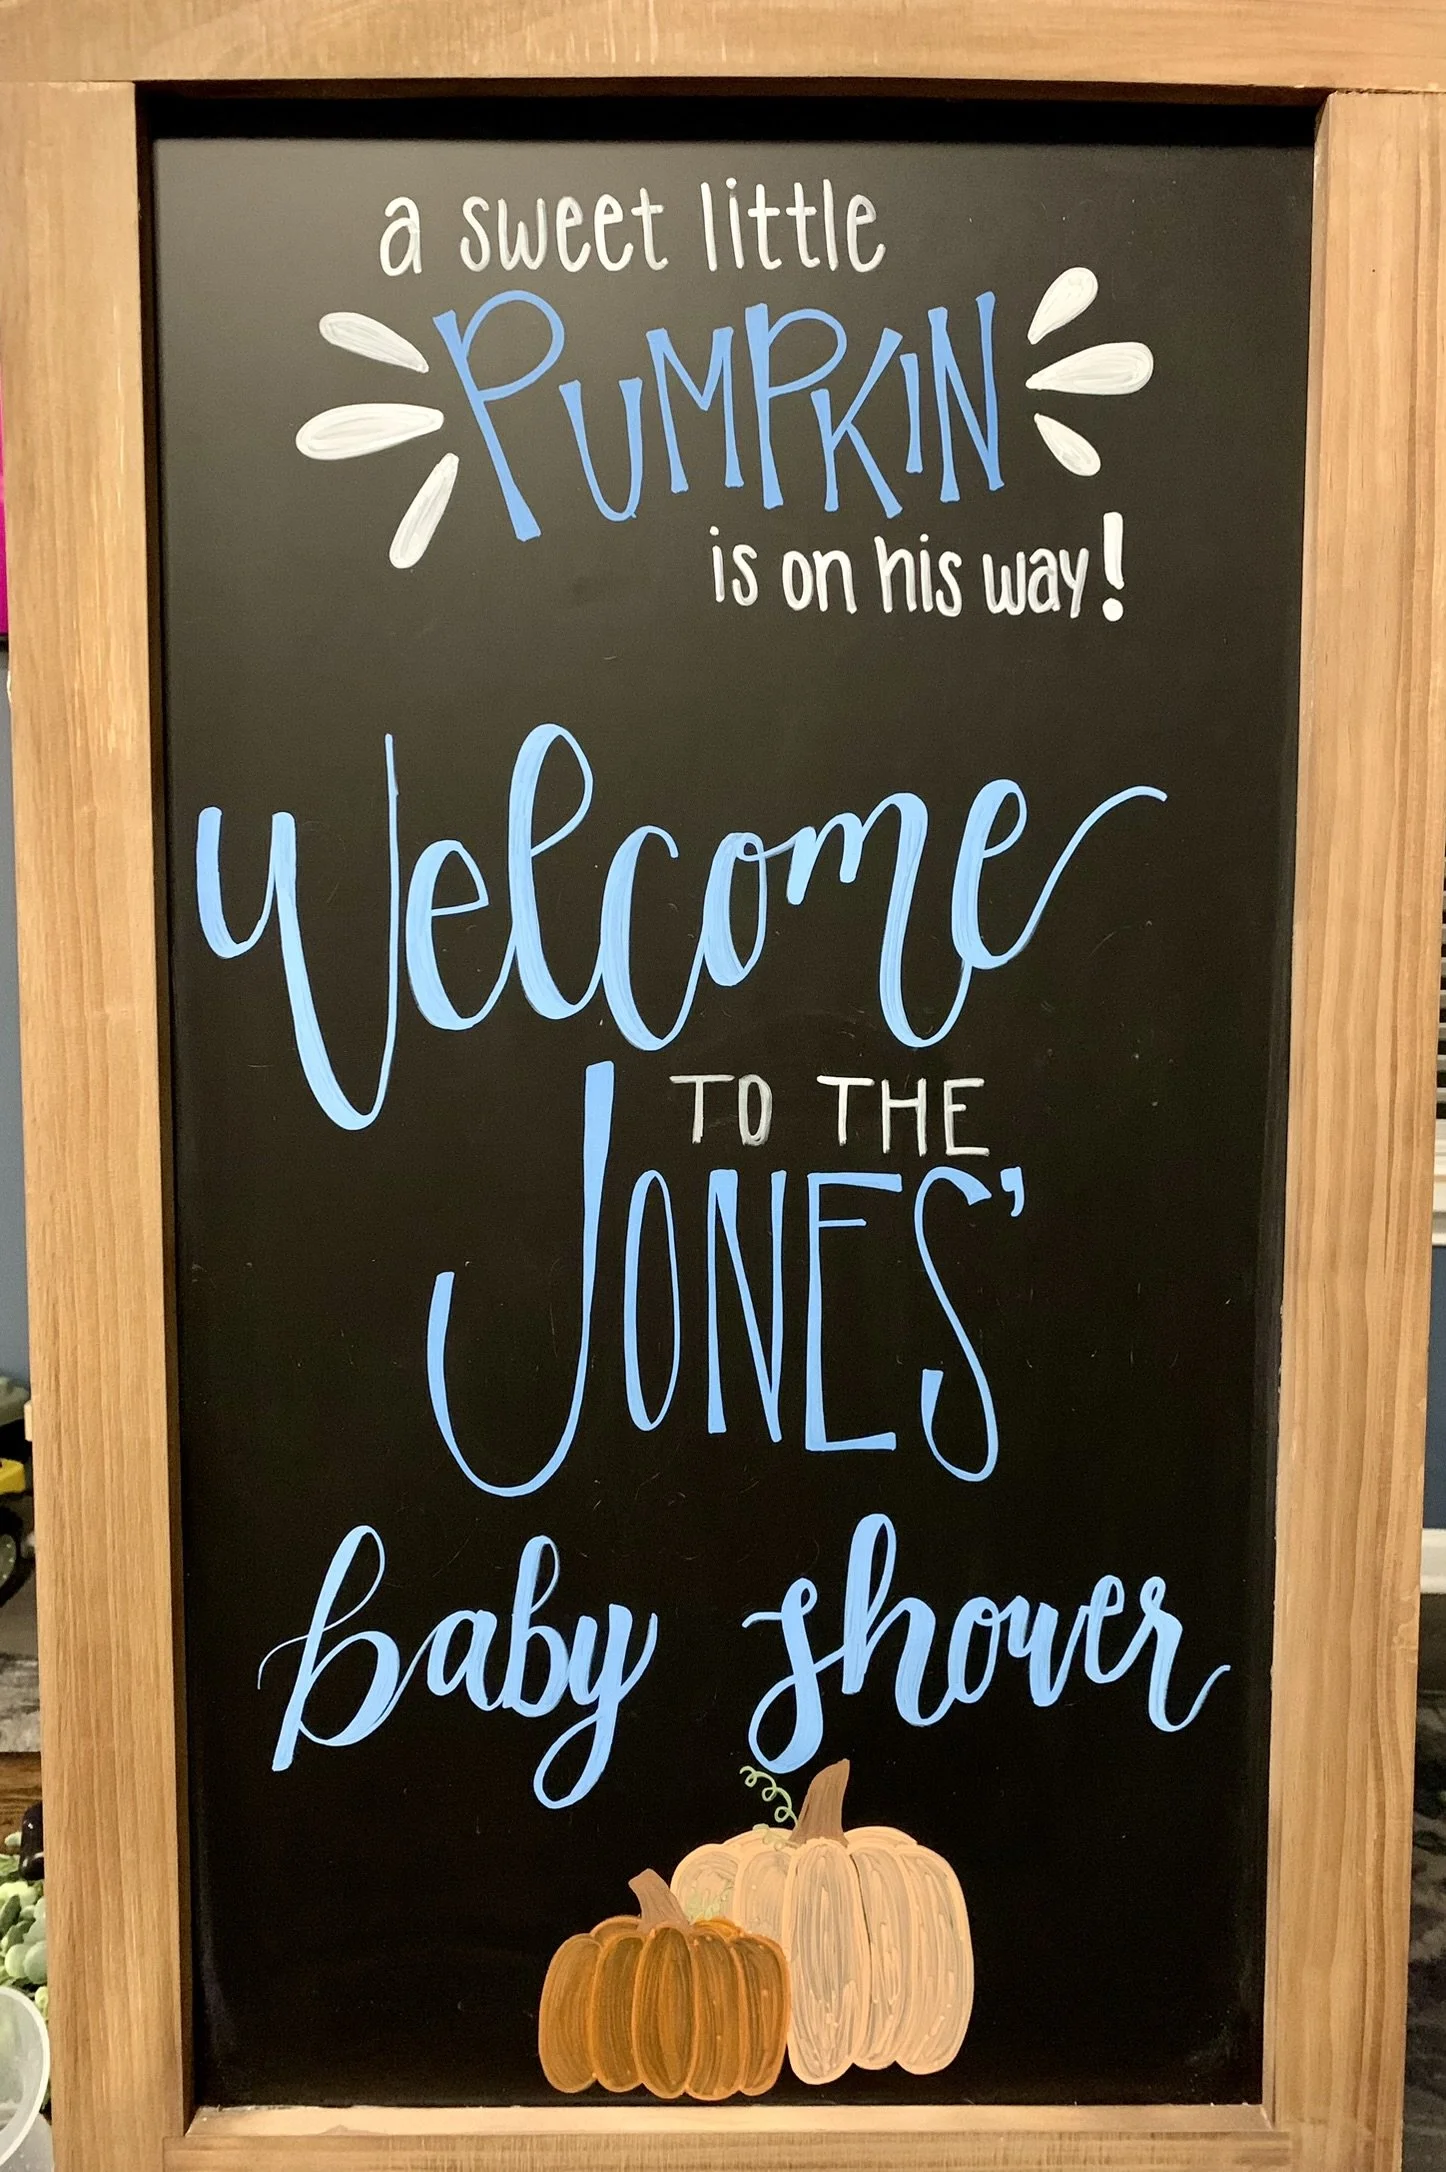 a sweet little
PUMPKIN
is on his way!
Welcome
TO THE
JONES'
baby shower